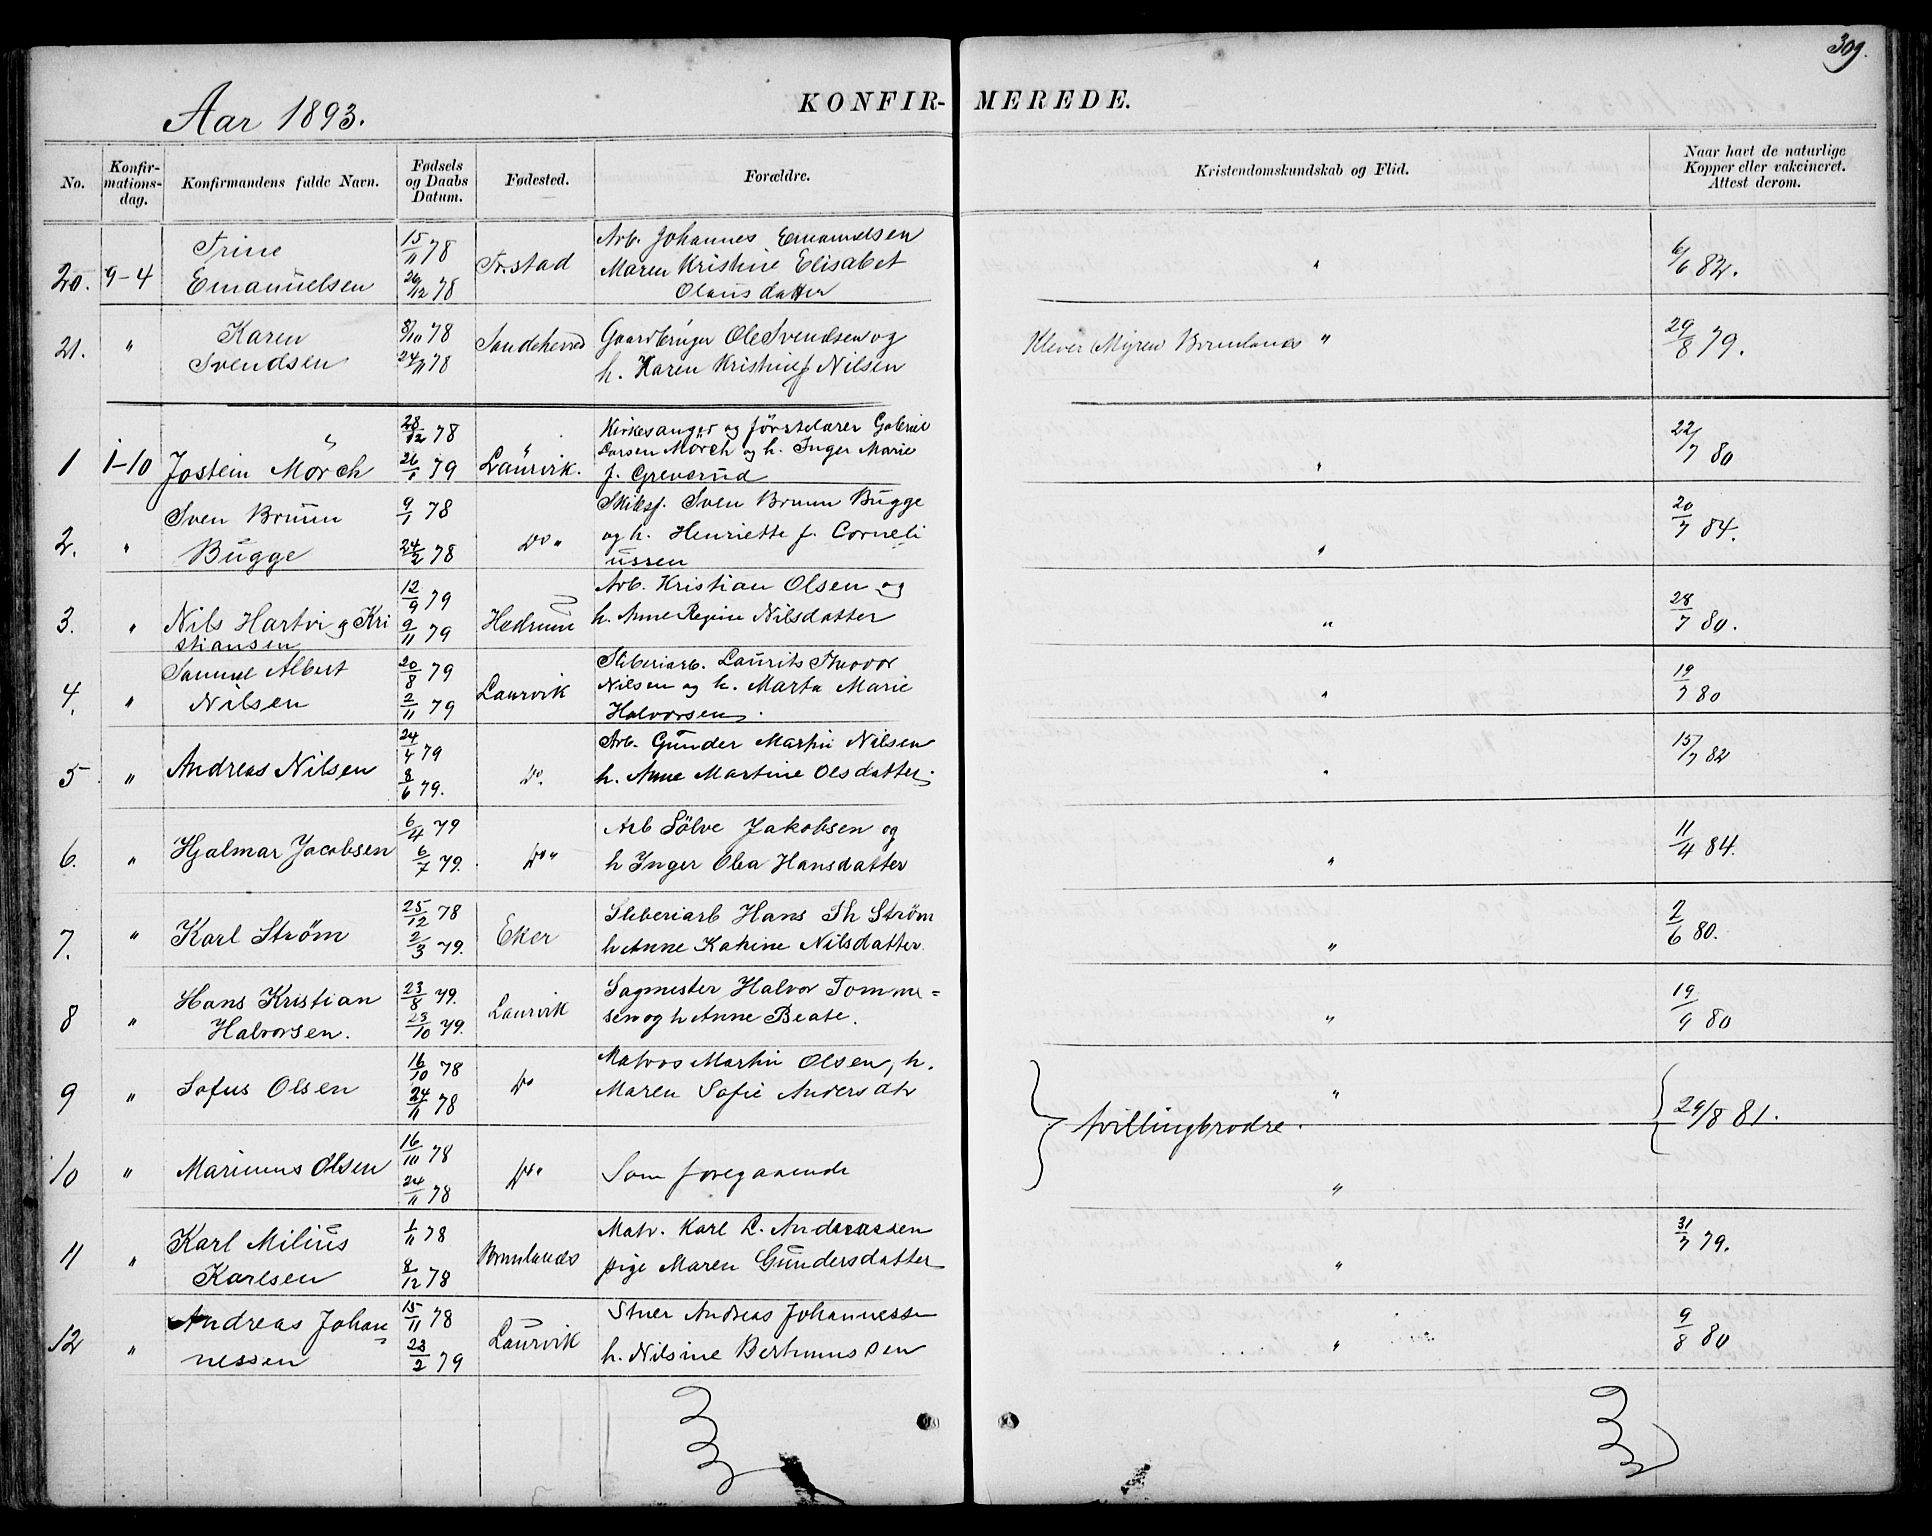 309.
Aar 1893.
KONFIR- MEREDE.
No. Konfir-mations-dag. Konfirmandens fulde Navn. Fødsels og Daabs Datum. Fødested. Forældre. Kristendomskundskab og Flid. Naar havt de naturlige Kopper eller vakcineret. Attest derom.
Trine 15/11 78 Arb. Johannes Emanuelsen
20. 9-4 Emanuelsen 26/12 78 Tstad Maren Kristine Elisabet " 6/6 82.
Olausdatter
Karen 8/10 78 Gaardbruger Ole Svendsen og
21. " Svendsen 24/11 78 Sandeherred h. Karen Kristine f Nilsen Klever Myren Brunlanæs " 29/8 79.
28/12 78 Kirkesanger og førstelærer Gabriel
1 1-10 Jostein Mörch 26/1 79 Laurvik. Larsen Mörch og h. Inger Marie " 22/7 80
f. Greverud
Sven Bruun 9/1 78 Skibsf. Sven Bruun Bugge
2. " Bugge 24/2 78 Do " og h. Henriette f. Corneli " 20/7 84.
ussen
12/9 79 Arb. Kristian Olsen og
3. " Nils Hartvig Kri 9/11 79 Hedrum h. Anne Regine Nilsdatter " 28/7 80.
stiansen
Samuel Albert 20/8 79 Støberiarb. Laurits Theodor
4. " Nilsen 2/11 79 Laurvik Nilsen og h. Marta Marie " 19/7 80
Halvorsen.
24/4 79 Arb. Gunder Martin Nilsen
5 " Andreas Nilsen 8/6 79. Do. h. Anne Martine Olsdatter. " 15/7 82
6/4 79 Arb Sölve Jakobsen og
6. " Hjalmar Jacobsen 6/7 79. Do " h Inger Olea Hansdatter " 11/4 84.
25/12 78 Støberiarb Hans Th Strøm
7. " Karl Strøm 2/3 79. Eker h Anne Katrine Nilsdatter. " 2/6 80.
Hans Kristian 23/8 79. Sagmester Halvor Tomme=
8 " Halvorsen. 23/10 79. Laurvik sen og h Anne Beate. " 19/9 80
16/10 78 Matros Martin Olsen, h.
9 " Sofus Olsen 24/11 78 Do Maren Sofie Andersdtr "
tvillingbrødre. 29/8 81.
16/10 78
10 " Marinus Olsen 24/11 78 Do " Som foregaaende "
Karl Milius 1/11 78 Matr. Karl L. Anderassen
11 " Karlsen 8/12 78 Brunlanæs pige Maren Gundersdatter " 31/7 79.
Andreas Johan 15/11 78 Stuer Andreas Johannessen
12 " nessen 23/2 79 Laurvik h. Nilsine Bertinussen " 9/8 80